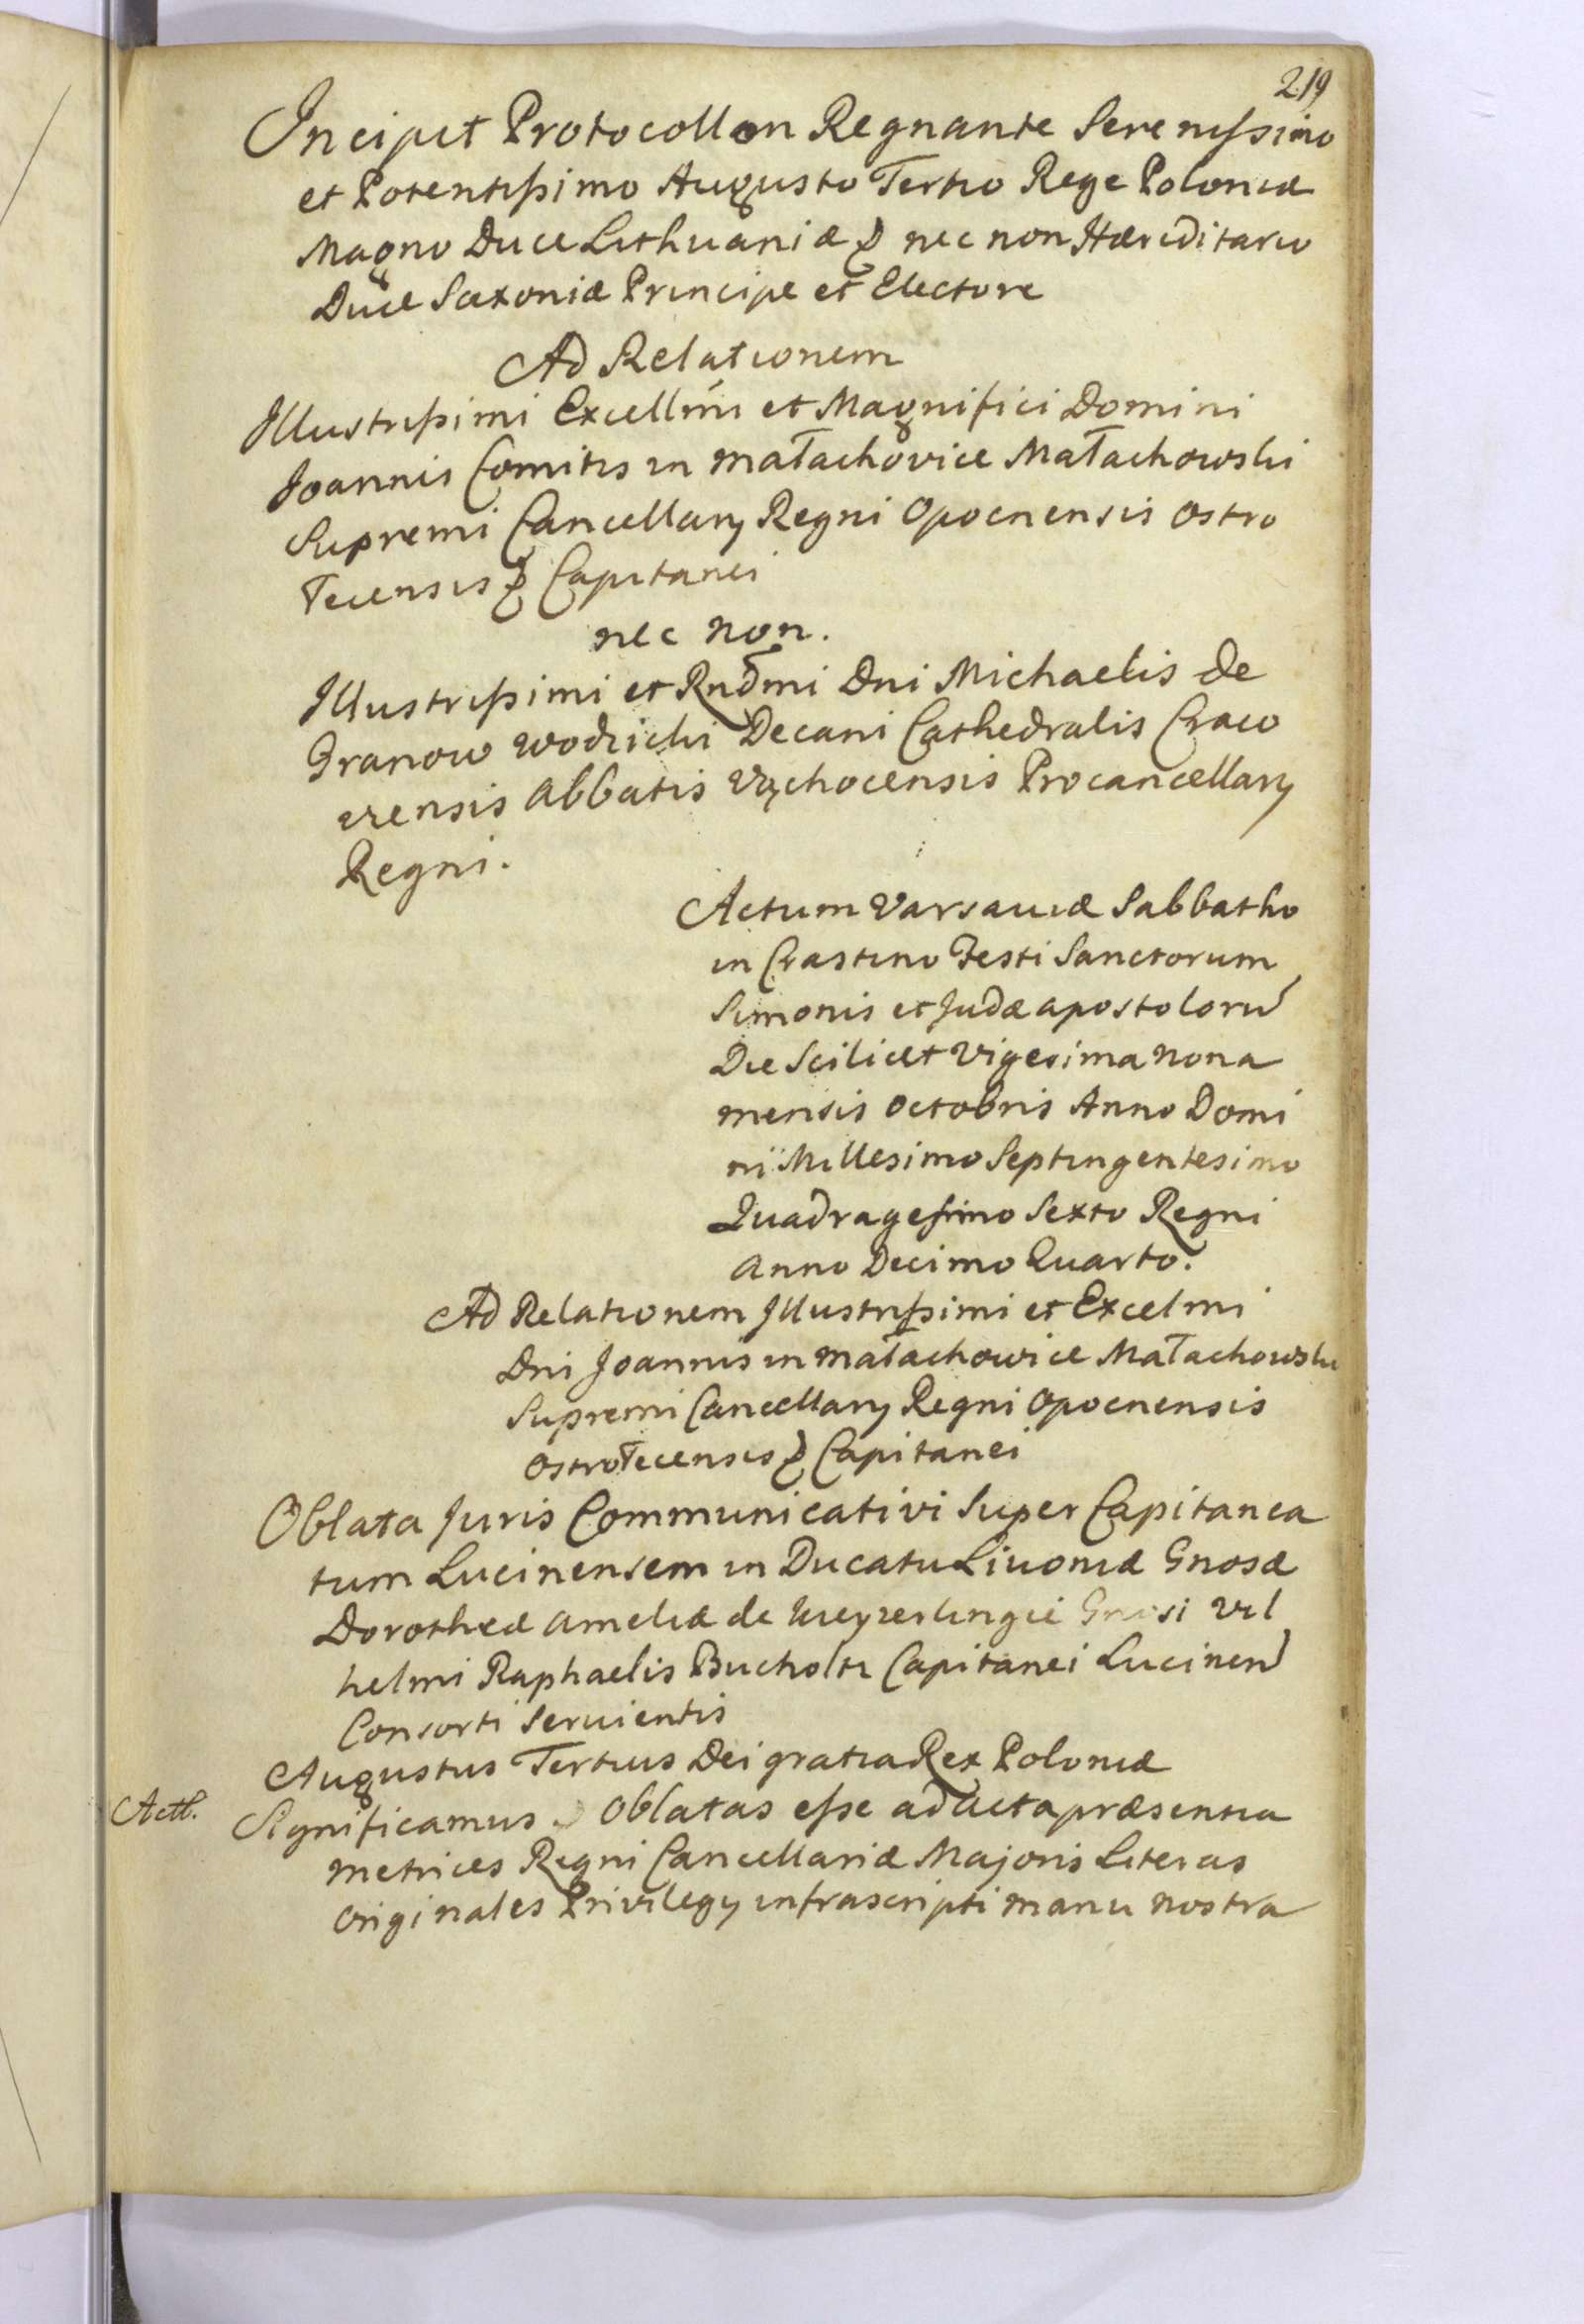 219
Incipit Protocollon Regnante Serenissimo
et Potentissimo Augusto Tertio Rege Poloniæ
Magno Duce Lithuaniæ & nec non Hæreditario
Duce Saxoniæ Principe et Electore
Ad Relationem
Illustrissimi Excellmi et Magnifici Domini
Joannis Comitis in Małachovice Małachowski
Supremi Cancellarij Regni Opocnensis Ostro
łecensis & Capitanei
nec non.
Illustrissimi et Rndmi Dni Michaelis de
Granow Wodzicki Decani Cathedralis Craco
viensis Abbatis Vąchocensis Procancellarij
Regni.
Actum Varsaviæ Sabbatho
in Crastino Festi Sanctorum
Simonis et Judæ Apostolorū
Die Scilicet Vigesima Nona
mensis Octobris Anno Domi
ni Millesimo Septingentesimo
Quadragesimo Sexto Regni
Anno Decimo Quarto.
Ad Relationem Illustrissimi et Excelmi
Dni Joannis in Małachowice Małachowski
Supremi Cancellarij Regni Opocnensis
Ostrołecensis & Capitanei
Oblata Juris Communicativi Super Capitanea
tum Lucinensem in Ducatu Livoniæ Gnosæ
Dorotheæ Ameliæ de Kieyzerlingie Gnosi Vil
helmi Raphaelis Bucholtz Capitanei Lucinen
Consorti Servientis
Augustus Tertius Dei gratia Rex Poloniæ
Actl. Significamus & Oblatas esse ad Acta præsentia
Metrices Regni Cancellariæ Majoris Literas
Originales Privilegij infrascripti manu nostra